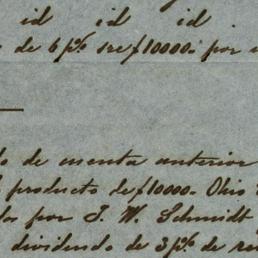 id id id
de 6 p% sre $10000. por
o de cuenta anterior
producto de $10000. Ohio
dos por J. W. Schmidt
dividendo de 3 p% de